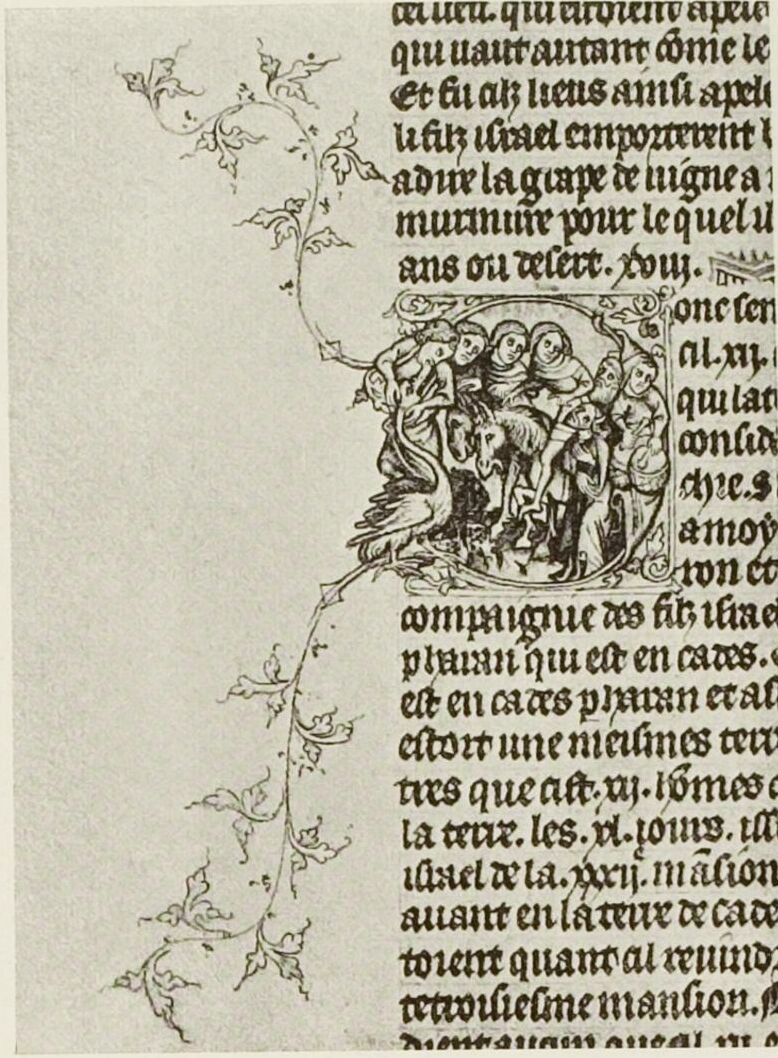 qui uaut autant cōme le
Et fu cilz lieus ainsi apele
li filz israel emporterent l
adire la grape de uigne a
murmure pour le quel il
ans ou desert. xviij.
onc sen
cil .xij.
qui lat
conside
chie. s
a moy
ron et
compaignie des filz israel
pharan qui est en cades.
est en cades pharan et as
estoit une meismes terre
tres que cist .xij. hōmes
la terre. les .xl. iours. iss
israel de la .xxxij. māsion
auant en la terre de cade
toient quant cil reuindr
tetroisiesme mansion.